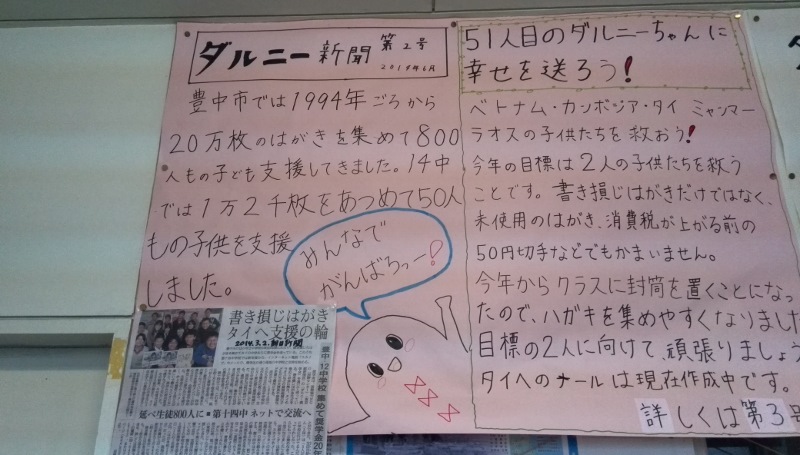 ダルニー新聞 第2号
2014年6月
豊中市では1994年ごろから
20万枚のはがきを集めて800
人もの子ども支援してきました。14中
では1万2千枚をあつめて50人
もの子供を支援
しました。
みんなで
がんばろっー!
書き損じはがき
タイへ支援の輪
2014.3.2.朝日新聞
豊中・12中学校 集めて奨学金20年
延べ生徒800人に■第十四中 ネットで交流へ
51人目のダルニーちゃんに
幸せを送ろう!
ベトナム・カンボジア・タイ ミャンマー
ラオスの子供たちを救おう!
今年の目標は2人の子供たちを救う
ことです。書き損じはがきだけではなく、
未使用のはがき、消費税が上がる前の
50円切手などでもかまいません。
今年からクラスに封筒を置くことになっ
たので、ハガキを集めやすくなりました
目標の2人に向けて、頑張りましょう
タイへのメールは現在作成中です。
詳しくは第3号